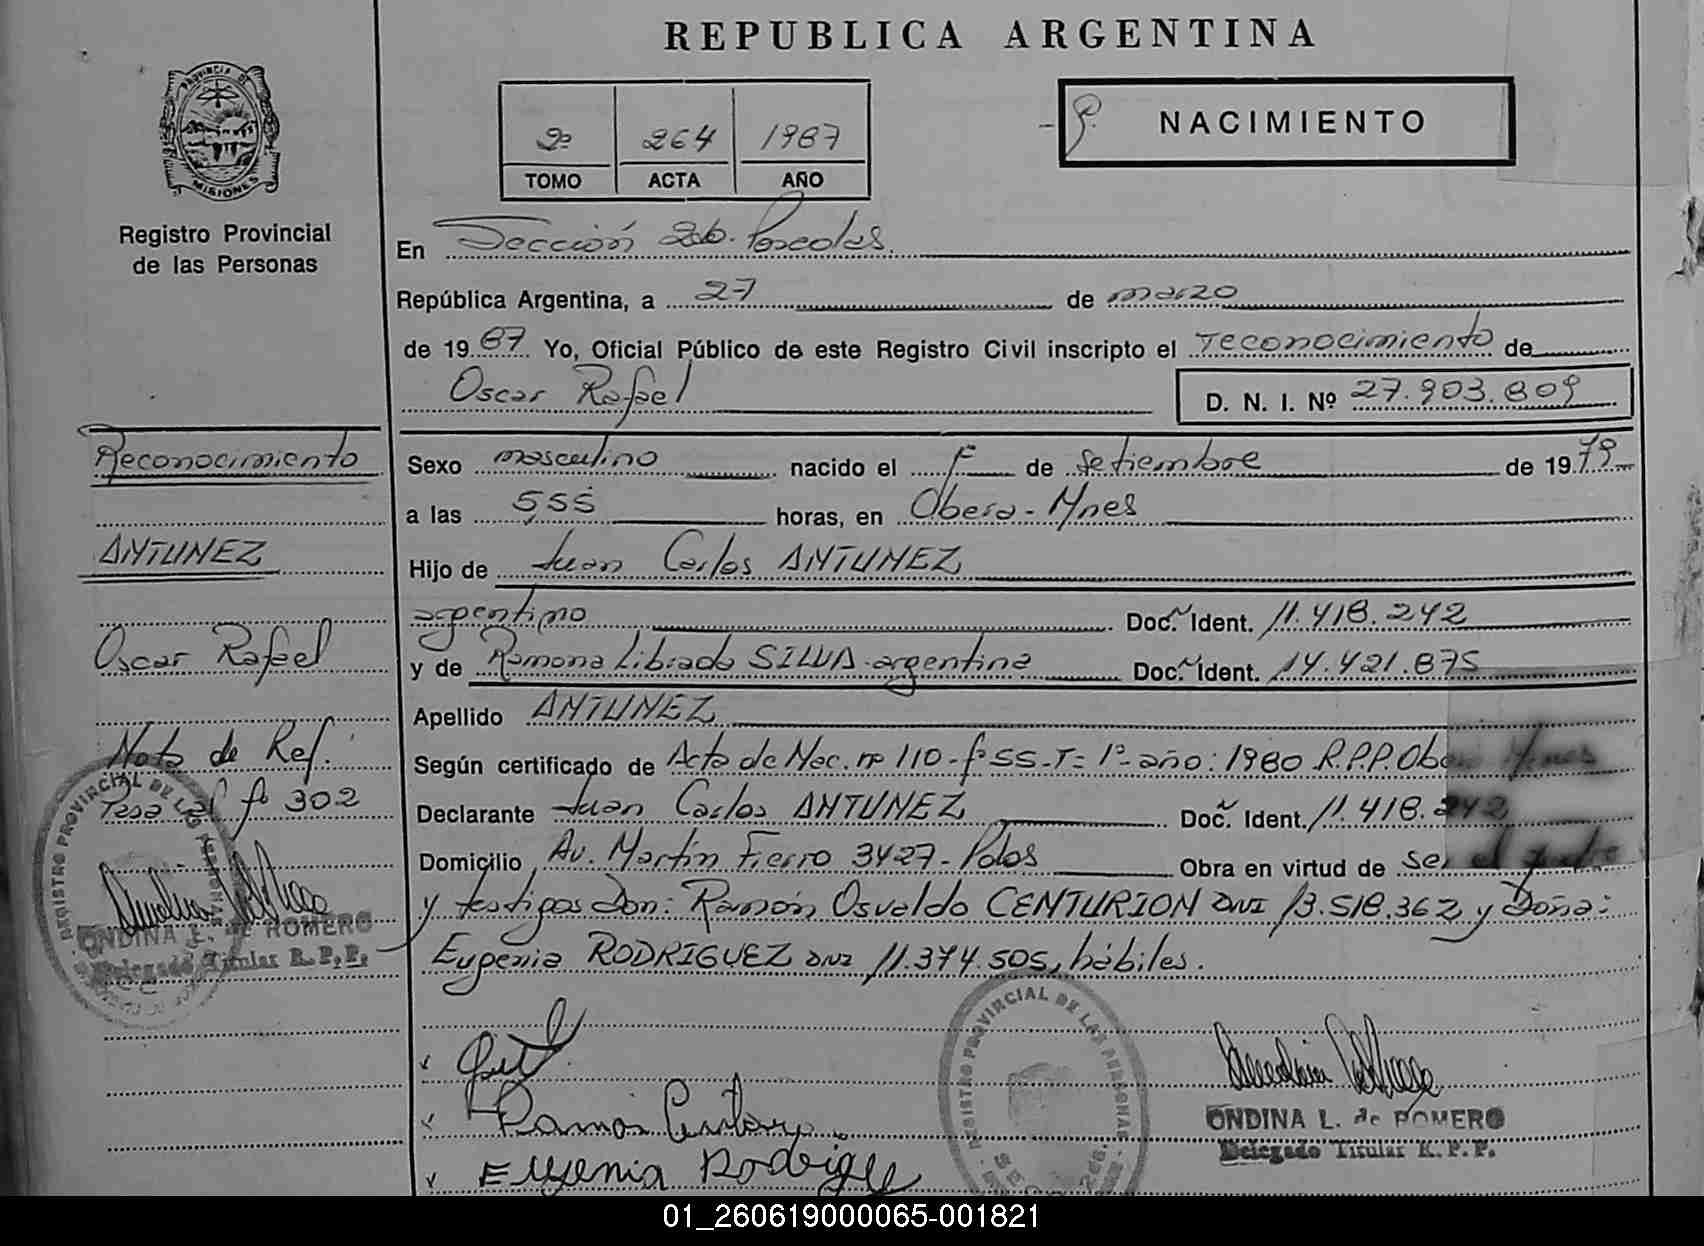 REPUBLICA ARGENTINA
PROVINCIA DE
MISIONES
Registro Provincial
de las Personas
2º 264 1987
TOMO ACTA AÑO
NACIMIENTO
En Sección 2da. Posadas
República Argentina, a 27 de marzo
de 1987 Yo, Oficial Público de este Registro Civil inscripto el reconocimiento de
Oscar Rafael D. N. I. Nº 27.903.809
Reconocimiento
ANTUNEZ
Oscar Rafael
Nota de Ref.
fº 302
ONDINA L. de ROMERO
Delegado Titular R.P.P.
Sexo masculino nacido el de setiembre de 1979
a las 5,55 horas, en Obera - Mnes
Hijo de Juan Carlos ANTUNEZ
argentino Doc. Ident. 11.418.242
y de Ramona Librada SILVA - argentina Doc. Ident. 14.421.875
Apellido ANTUNEZ
Según certificado de Acta de Nac. nº 110 - fº 55 - Tº 1º - año: 1980 R.P.P. Obera Mnes
Declarante Juan Carlos ANTUNEZ Doc. Ident. 11.418.242
Domicilio Av. Martín Fierro 3427 - Pdas Obra en virtud de ser el padre
y testigos Don: Ramón Osvaldo CENTURION DNI 13.518.362 y Doña:
Eugenia RODRIGUEZ DNI 11.374.505, hábiles.
REGISTRO PROVINCIAL DE LAS PERSONAS
Eugenia Rodrigue
ONDINA L. de ROMERO
Delegado Titular R.P.P.
01_260619000065-001821